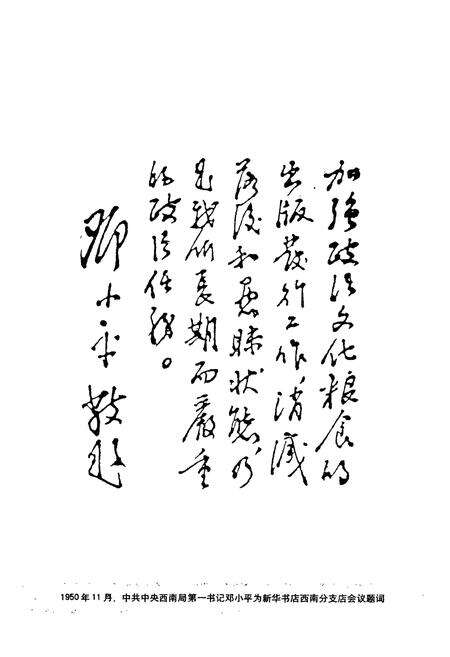 加強政治文化粮食的
出版發行工作，消滅
落後和愚昧状態，乃
是我们長期而嚴重
的政治任務。
鄧小平敬题
1950年11月，中共中央西南局第一书记邓小平为新华书店西南分支店会议题词